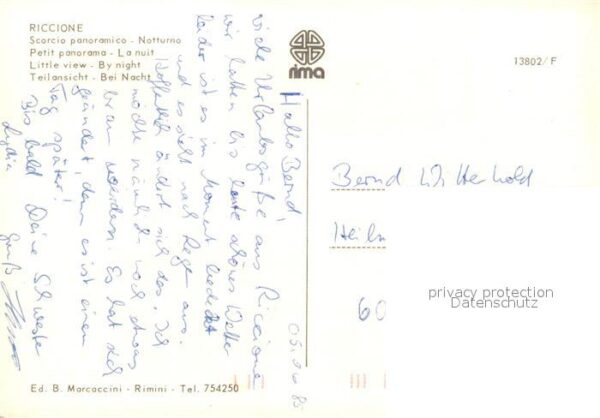 RICCIONE
Scorcio panoramico - Notturno
Petit panorama - La nuit
Little view - By night
Teilansicht - Bei Nacht
rima
13802/F
Hallo Bernd,
viele Urlaubsgrüße aus Riccione
wir hatten bis heute schönes Wetter
leider ist es im Moment bedeckt
und es sieht nach Regen aus.
Hoffentlich ändert sich das, Ich
möchte nämlich noch etwas
braun werden. Es hat sich
geändert, denn es ist einen
Tag später!
Bis bald Deine Schwester
Lydia
Gruß
Bernd
Heil
60
privacy protection
Datenschutz
Ed. B. Marcaccini - Rimini - Tel. 754250